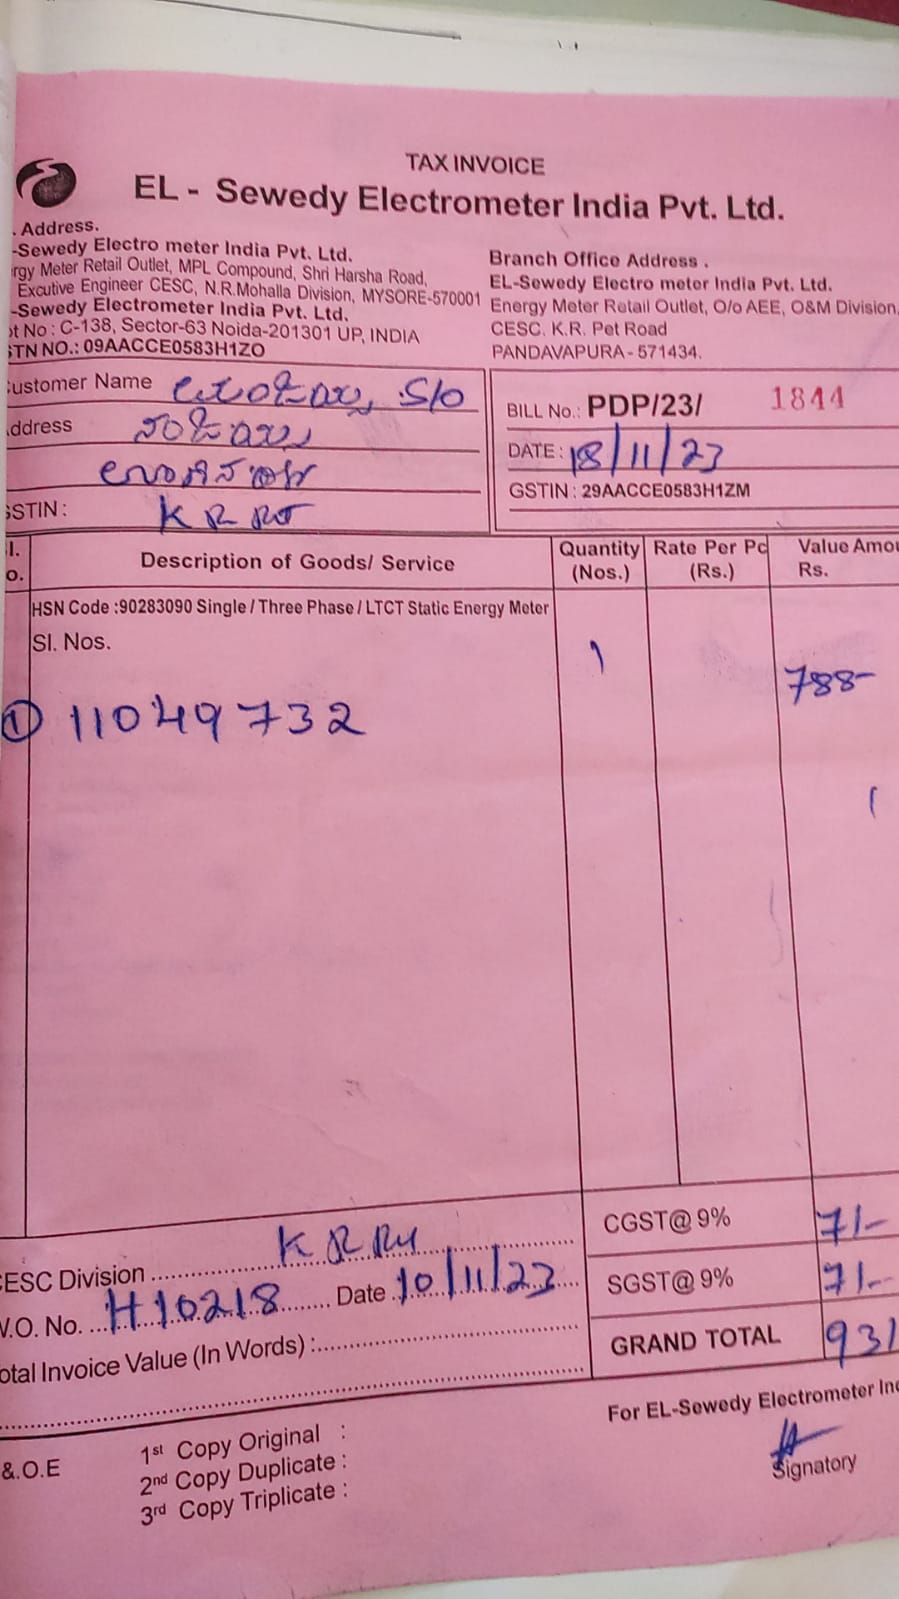 TAX INVOICE
EL - Sewedy Electrometer India Pvt. Ltd.
. Address.
-Sewedy Electro meter India Pvt. Ltd.
rgy Meter Retail Outlet, MPL Compound, Shri Harsha Road,
Excutive Engineer CESC, N.R.Mohalla Division, MYSORE-570001
-Sewedy Electrometer India Pvt. Ltd.
ot No : C-138, Sector-63 Noida-201301 UP, INDIA
STN NO.: 09AACCE0583H1ZO
Branch Office Address .
EL-Sewedy Electro meter India Pvt. Ltd.
Energy Meter Retail Outlet, O/o AEE, O&M Division,
CESC. K.R. Pet Road
PANDAVAPURA - 571434.
ustomer Name S/o
ddress
GSTIN : K R
BILL No.: PDP/23/ 1844
DATE : 18/11/23
GSTIN : 29AACCE0583H1ZM
l. Description of Goods/ Service Quantity Rate Per Pc Value Amou
o. (Nos.) (Rs.) Rs.
HSN Code :90283090 Single / Three Phase / LTCT Static Energy Meter
Sl. Nos. 1 788-
① 11049732
CGST@ 9% 71-
CESC Division K R
SGST@ 9% 71-
W.O. No. H10218 Date 10/11/23
GRAND TOTAL 931
otal Invoice Value (In Words) :
For EL-Sewedy Electrometer Ind
&.O.E
1st Copy Original :
2nd Copy Duplicate :
3rd Copy Triplicate :
Signatory